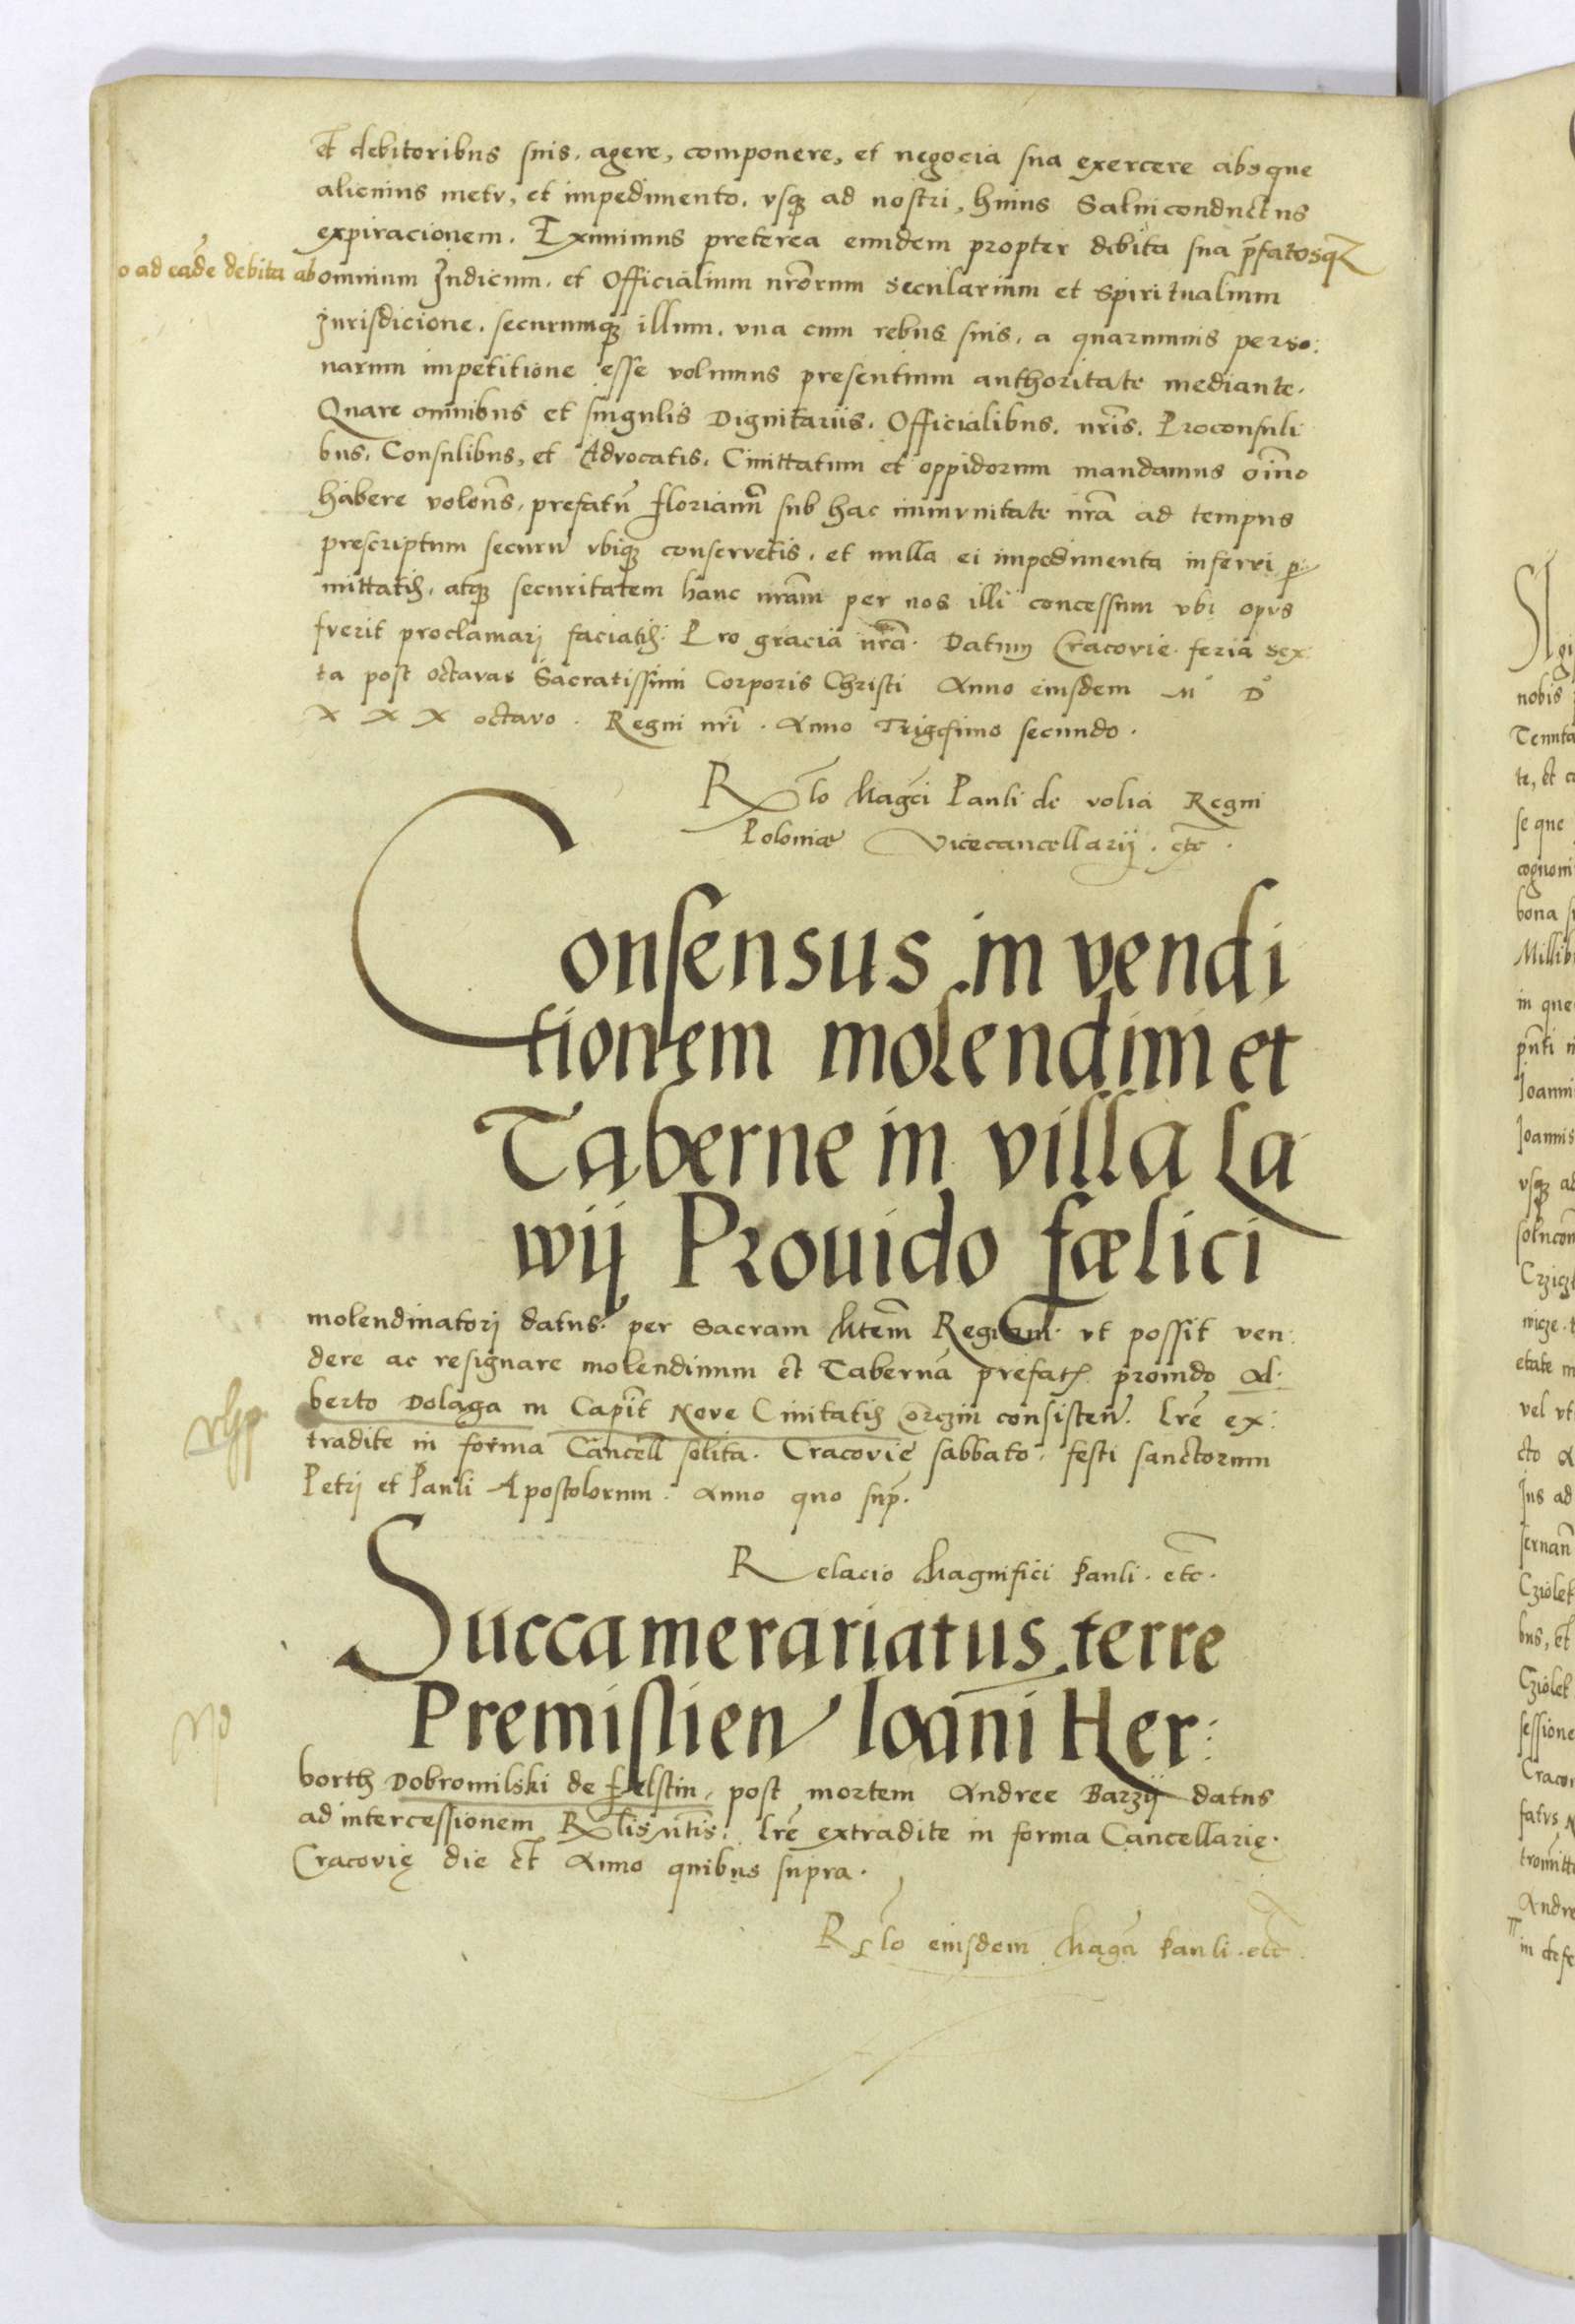 Et debitoribus suis, agere, componere, et negocia sua exercere absque
alicuius metu, et impedimento, vsq3 ad nostri, huius Saluiconductus
expiracionem. Eximimus preterea eundem propter debita sua p̄fatosq3
o ad eadē debita ab omnium Iudicum, et Officialium nr̄orum secularium et spiritualium
Iurisdicione, securumq3 illum, vna cum rebus suis, a quarumuis perso:
narum impetitione esse volumus presentium authoritate mediante.
Quare omnibus et singulis Dignitariis, Officialibus, nr̄is, Proconsuli
bus, Consulibus, et Advocatis, Ciuittatum et oppidorum mandamus oīno
habere volen̄s, prefatū Florianū sub hac immvnitate nr̄a ad tempus
prescriptum securū vbiq3 conservetis, et nulla ei impedimenta inferri p̱
mittatis, atq3 securitatem hanc nr̄am per nos illi concessum vbi opvs
fverit proclamarj faciatis. Pro gracia nr̄a. Datum Cracovie feria sex:
ta post octavas Sacratissimi Corporis Christi Anno eiusdem M° D°
X X X octavo. Regni nr̄i. Anno Trigesimo secundo.
Rl̄o Maḡci Pauli de volia Regni
Poloniæ Vicecancellarij. etc̄.
Consensus in vendi
tionem molendini et
Taberne in villa La
wij Prouido fælici
molendinatorj datus per Sacram Mtem̄ Regiam. vt possit ven:
dere ac resignare molendinum et Tabernā prefatȝ prouido Al:
berto Dolaga in Capit̄ Nove Ciuitatis Corczin consisten̄. Lr̄e ex:
tradite in forma Cancell̄ solita. Cracovie sabbato, festi sanctorum
Petrj et Pauli Apostolorum. Anno quo sup̄.
Relacio Magnifici Pauli. etc̄.
Succamerariatus terre
Premislien̄ Ioānni Her:
borth Dobromilski de Felstin, post mortem Andree Barzij datus
ad intercessionem R̄lis Mtis̄. Lr̄e extradite in forma Cancellarię.
Cracovię die et Anno quibus supra.
Rl̄o eiusdem Magc̄i Pauli. etc̄.